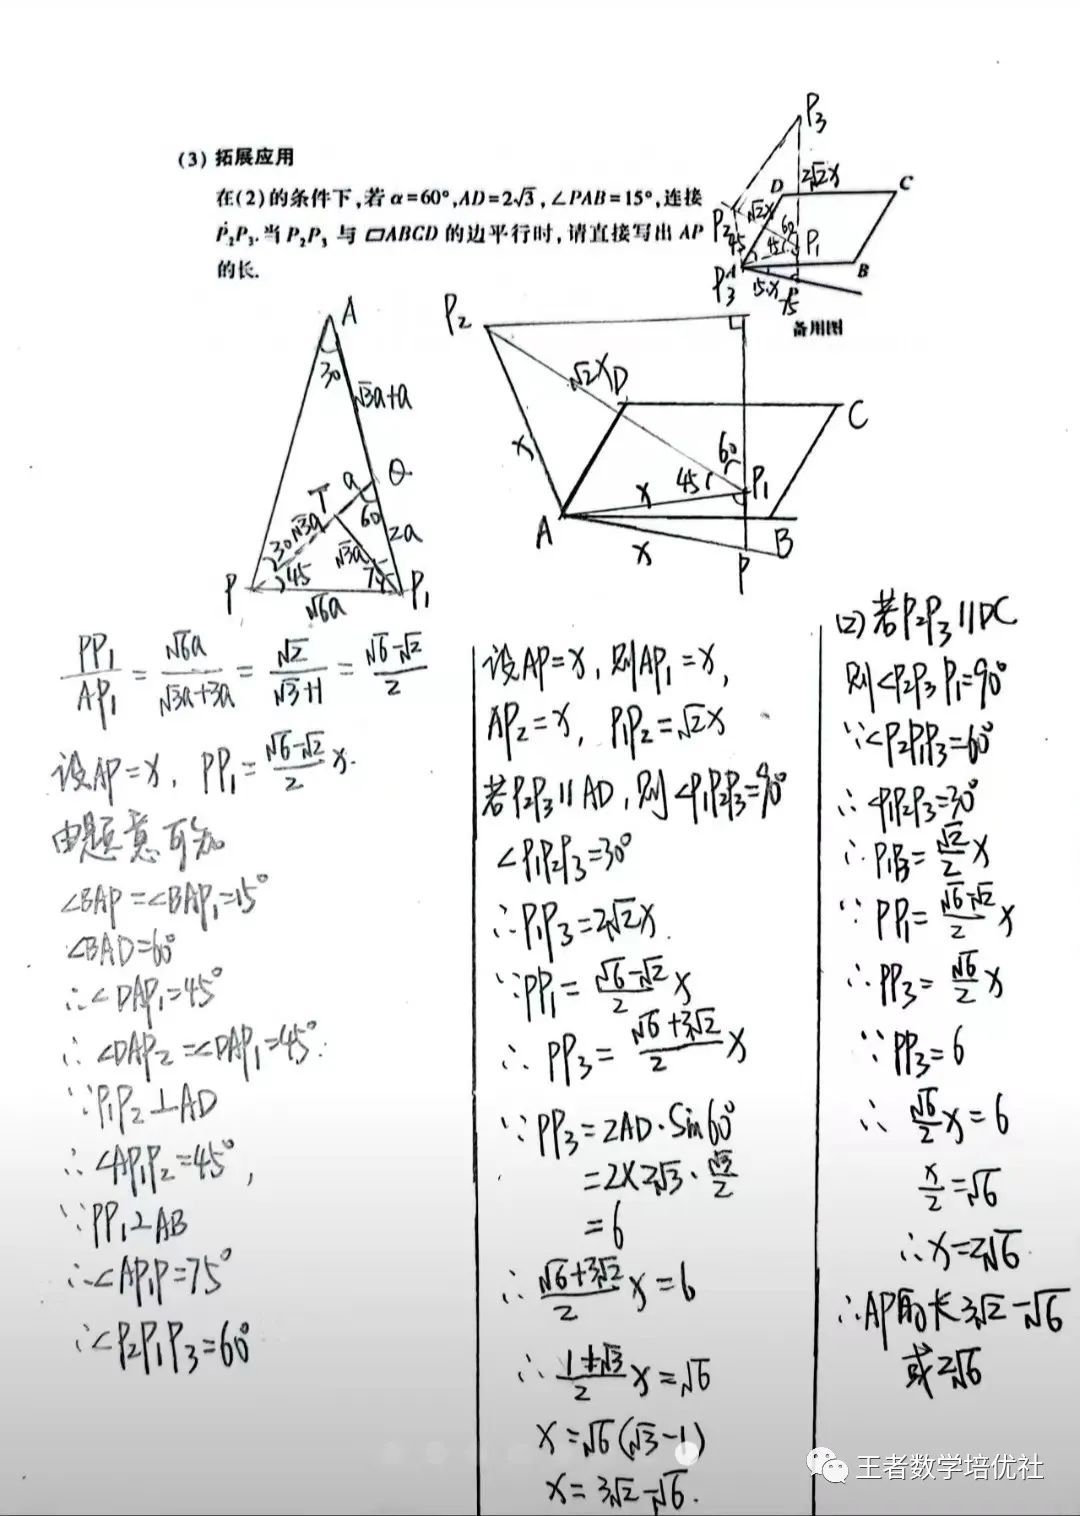 (3) 拓展应用
在(2)的条件下,若α=60°,AD=2√3,∠PAB=15°,连接
P₂P₃.当P₂P₃与▱ABCD的边平行时,请直接写出AP
的长.
P₃
2√2x
D
C
P₂
√2x
60
45
45
P₁
A
B
P₃
15°
x
P
75
备用图
A
30
√3a+a
a
Q
T
60
2a
√3a
30
√3a
45
75
P
P₁
√6a
P₂
√2x
D
C
x
60
45
P₁
x
A
B
x
P
PP₁/AP₁ = √6a/(√3a+3a) = √2/(√3+1) = (√6-√2)/2
设AP=x, PP₁=(√6-√2)/2 x.
由题意可知
∠BAP=∠BAP₁=15°
∠BAD=60°
∴∠DAP₁=45°
∴∠DAP₂=∠DAP₁=45°.
∵P₁P₂⊥AD
∴∠AP₁P₂=45°,
∵PP₁⊥AB
∴∠AP₁P=75°
∴∠P₂P₁P₃=60°
设AP=x,则AP₁=x,
AP₂=x, P₁P₂=√2x
若P₂P₃∥AD,则∠P₁P₂P₃=90°
∠P₁P₂P₃=30°
∴P₁P₃=2√2x
∵PP₁=(√6-√2)/2 x
∴PP₃=(√6+3√2)/2 x
∵PP₃=2AD·Sin60°
=2×2√3·√3/2
=6
∴(√6+3√2)/2 x=6
∴(1+√3)/2 x=√6
x=√6(√3-1)
x=3√2-√6.
(2)若P₂P₃∥DC
则∠P₂P₃P₁=90°
∵∠P₂P₁P₃=60°
∴∠P₁P₂P₃=30°
∴P₁P₃=√2/2 x
∵PP₁=(√6-√2)/2 x
∴PP₃=√6/2 x
∵PP₃=6
∴√6/2 x=6
x/2=√6
∴x=2√6
∴AP的长3√2-√6
或2√6
王者数学培优社